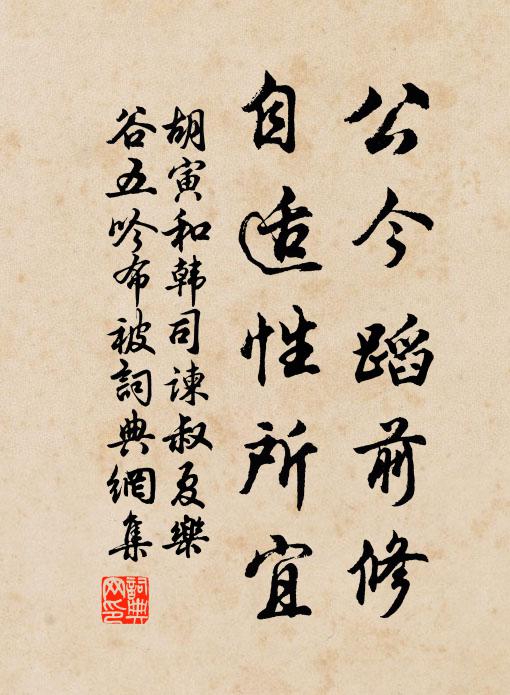 公今蹈前修
自适性所宜
胡寅和韩司谏叔夏樂
谷五吟布被詞典網集
詞典网印